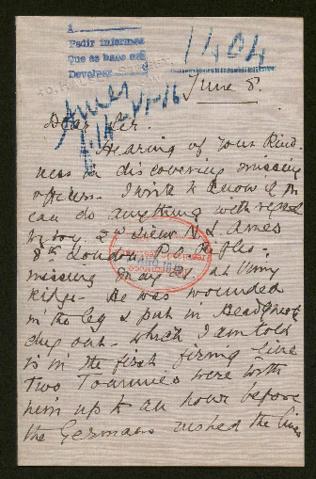 A
Pedir informes
Que se hace con
Devolver
1404
Ames
VI-16
June 8.
Dear Sir.
Hearing of your kind-
ness in discovering missing
officers. I write to know if you
can do anything with regard
to my boy. 2nd Lieut N L Ames
8th London P.O. Rifles.
missing May 21. at Vimy
Ridge. He was wounded
in the leg & put in Headquarters
dug out. which I am told
is in the first firing line
Two Tommies were with
him up to an hour before
the Germans rushed the lines